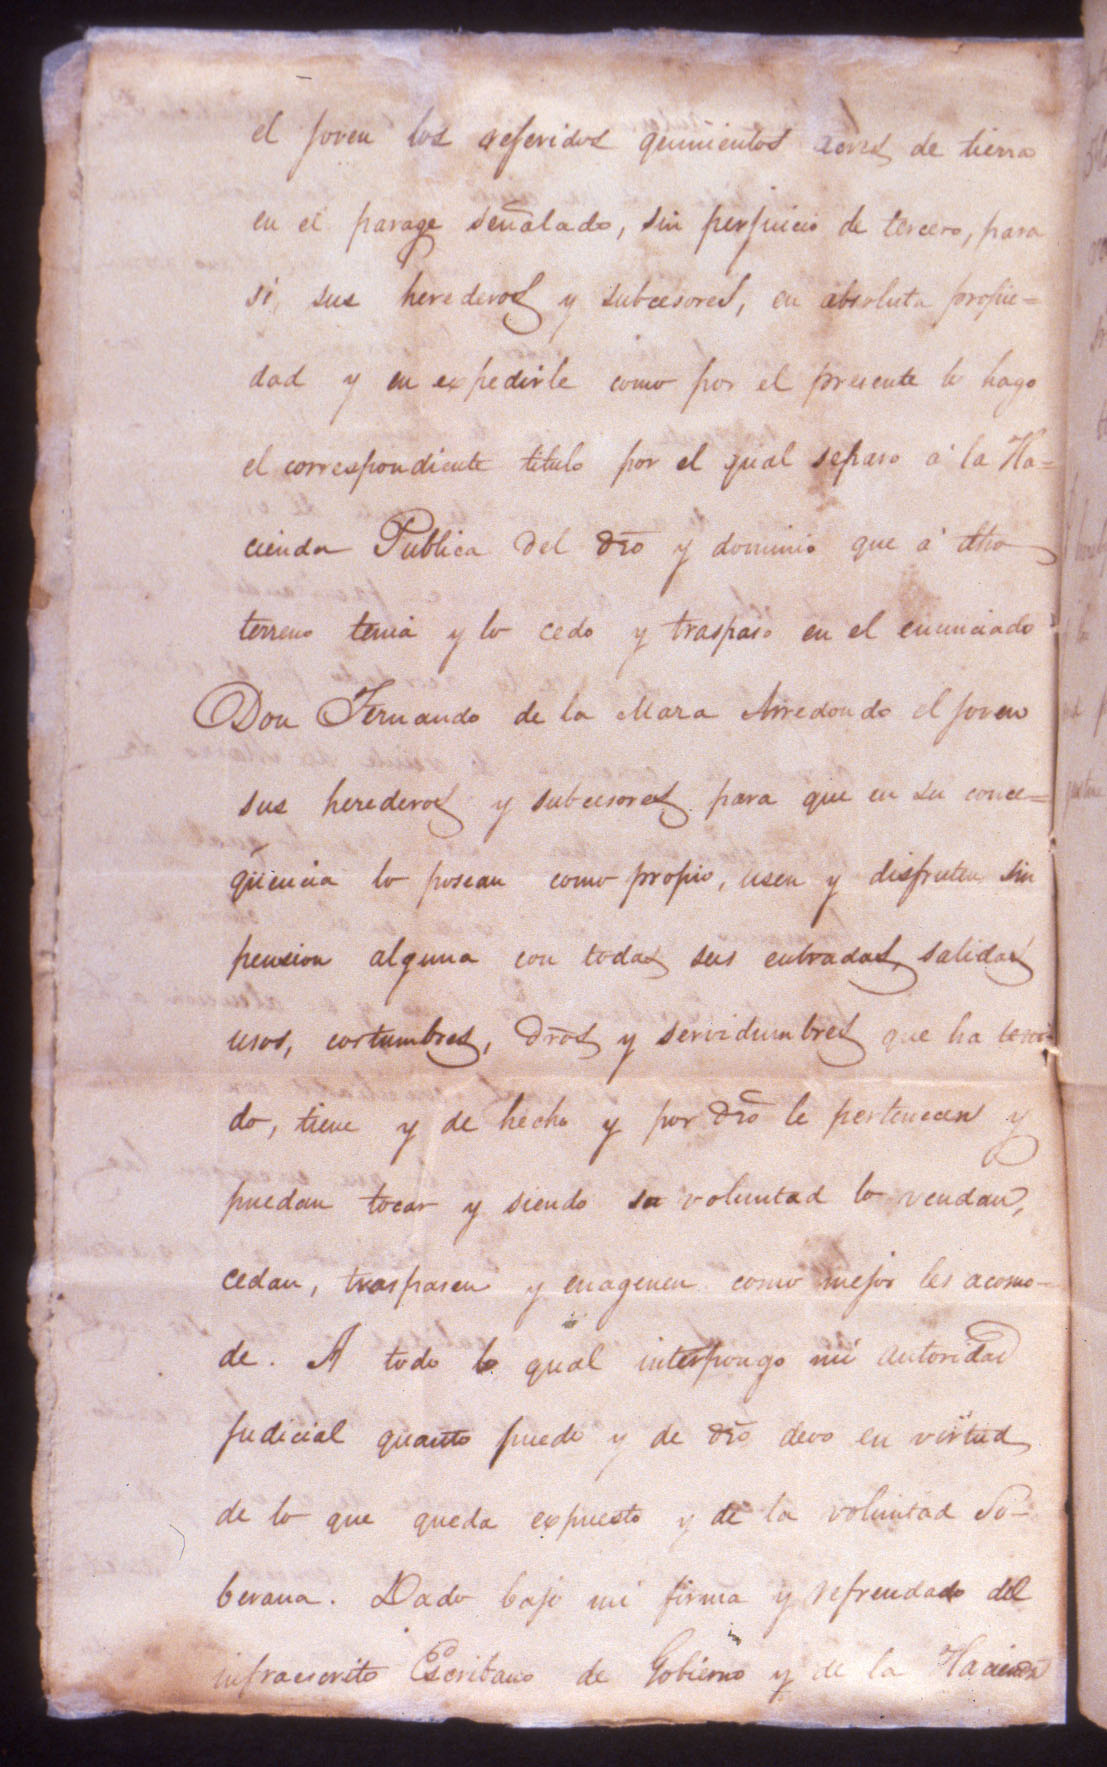 el joven los referidos quinientos acres de tierra
en el parage señalado, sin perjuicio de tercero, para
si, sus herederos y subcesores, en absoluta propie=
dad y en expedirle como por el presente lo hago
el correspondiente titulo por el qual separo á la Ha=
cienda Publica del dro y dominio que á dho
terreno tenia y lo cedo y traspaso en el enunciado
Don Fernando de la Maza Arredondo el joven
sus herederos y subcesores para que en su conce=
qüencia lo posean como propio, usen y disfruten sin
pension alguna con todas sus entradas, salidas
usos, costumbres, dros y servidumbres que ha teni-
do, tiene y de hecho y por dro le pertenecen y
puedan tocar y siendo su voluntad lo vendan,
cedan, traspasen y enagenen como mejor les acomo-
de. A todo lo qual interpongo mi autoridad
judicial quanto puedo y de dro devo en virtud
de lo que queda expuesto y de la voluntad So-
berana. Dado bajo mi firma y refrendado del
infraescrito Escribano de Gobierno y de la Hacienda